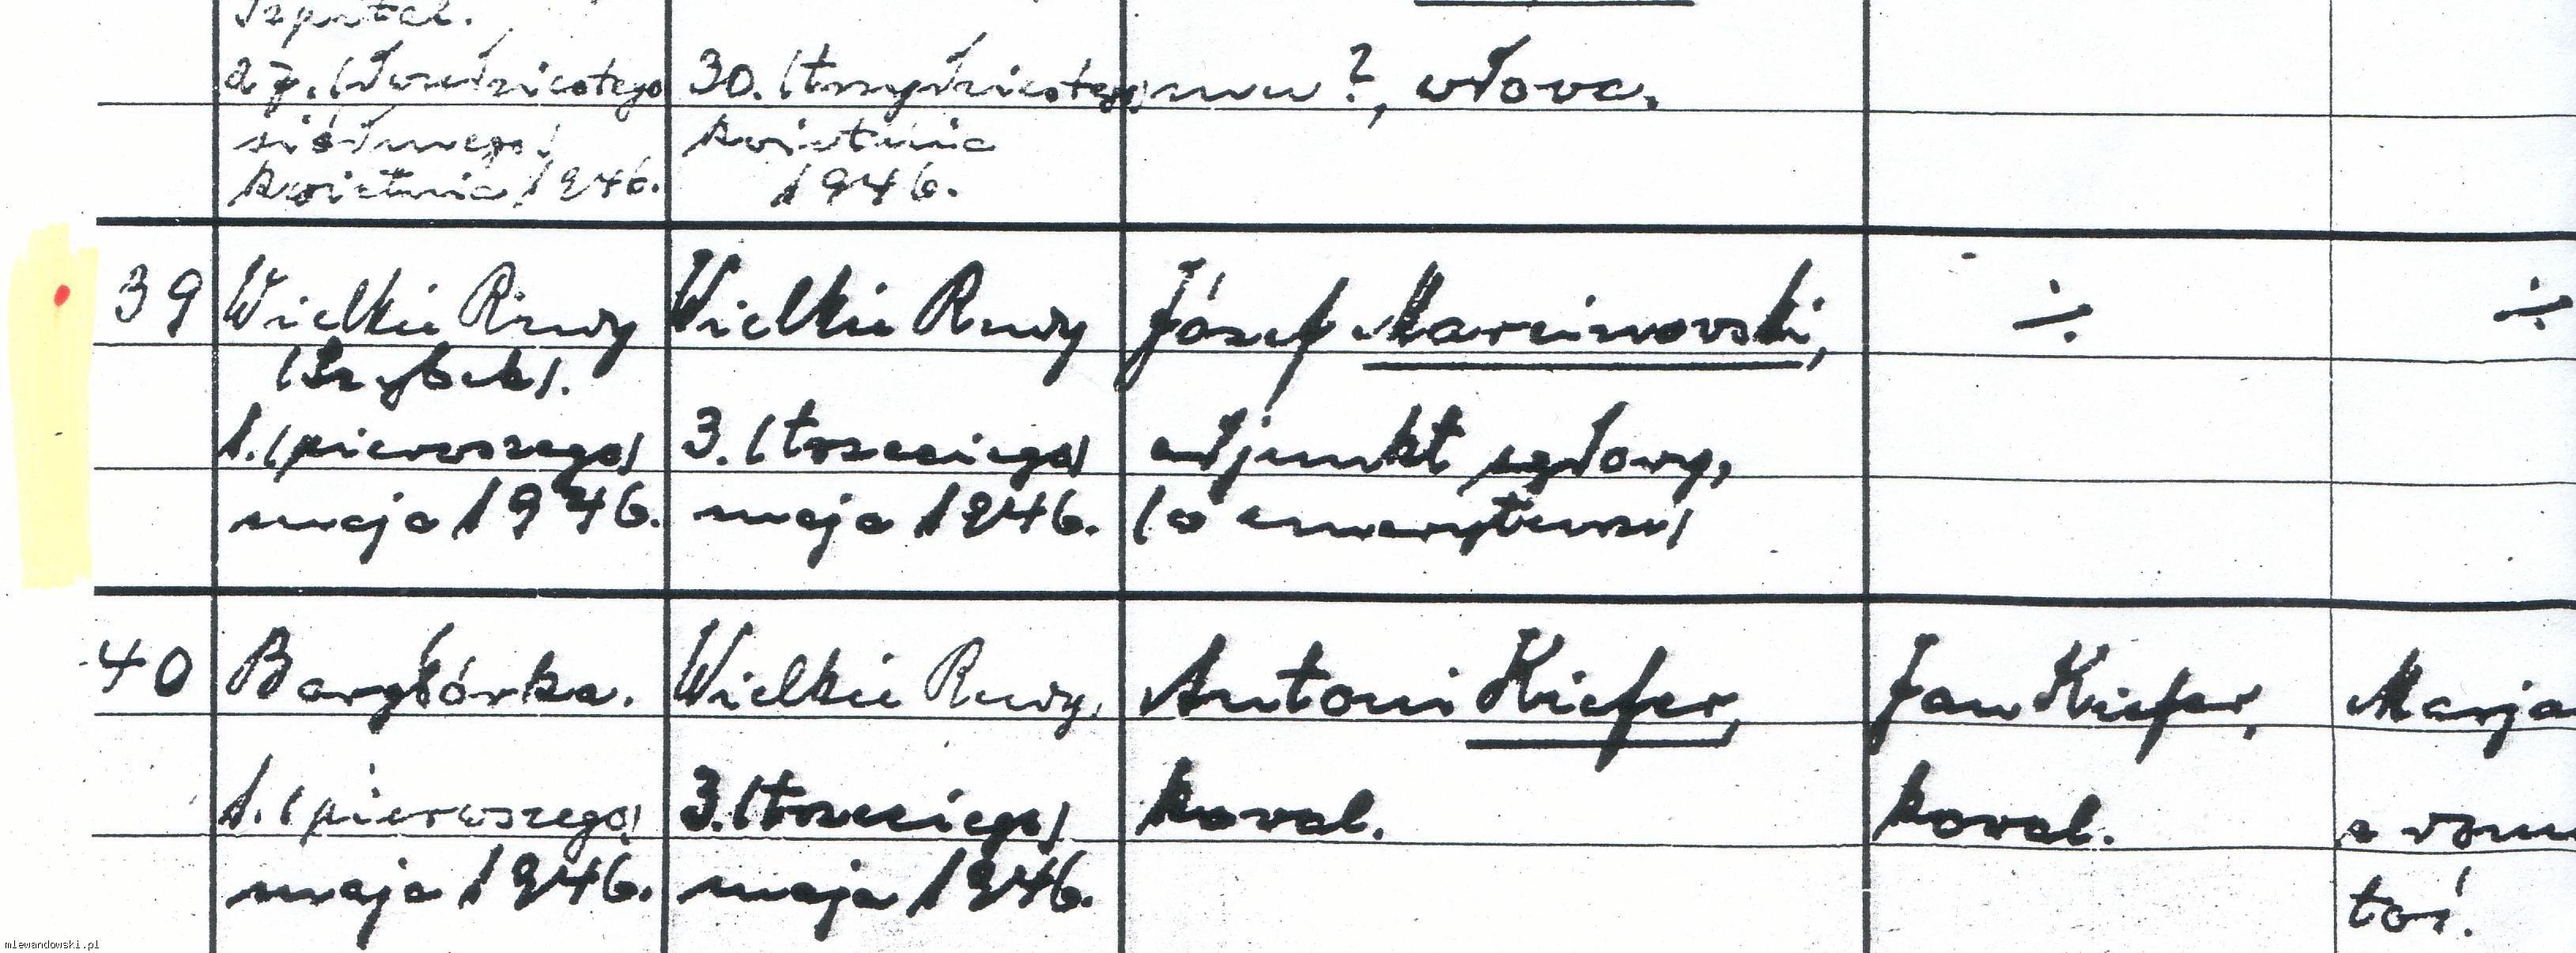 Szpital.
27. (dwudziestego 30. (trzydziestego mu ?, wdowa.
siódmego) kwietnia
kwietnia 1946. 1946.
39 Wielkie Rudy Wielkie Rudy Józef Marcinowski, ÷ ÷
(Szybek).
1. (pierwszego) 3. (trzeciego) adjunkt sądowy,
maja 1946. maja 1946. (o emeryturze)
40 Bargłówka. Wielkie Rudy, Antoni Kiefer, Jan Kiefer, Marja
1. (pierwszego) 3. (trzeciego) kowal. kowal. z
maja 1946. maja 1946. toś.
mlewandowski.pl